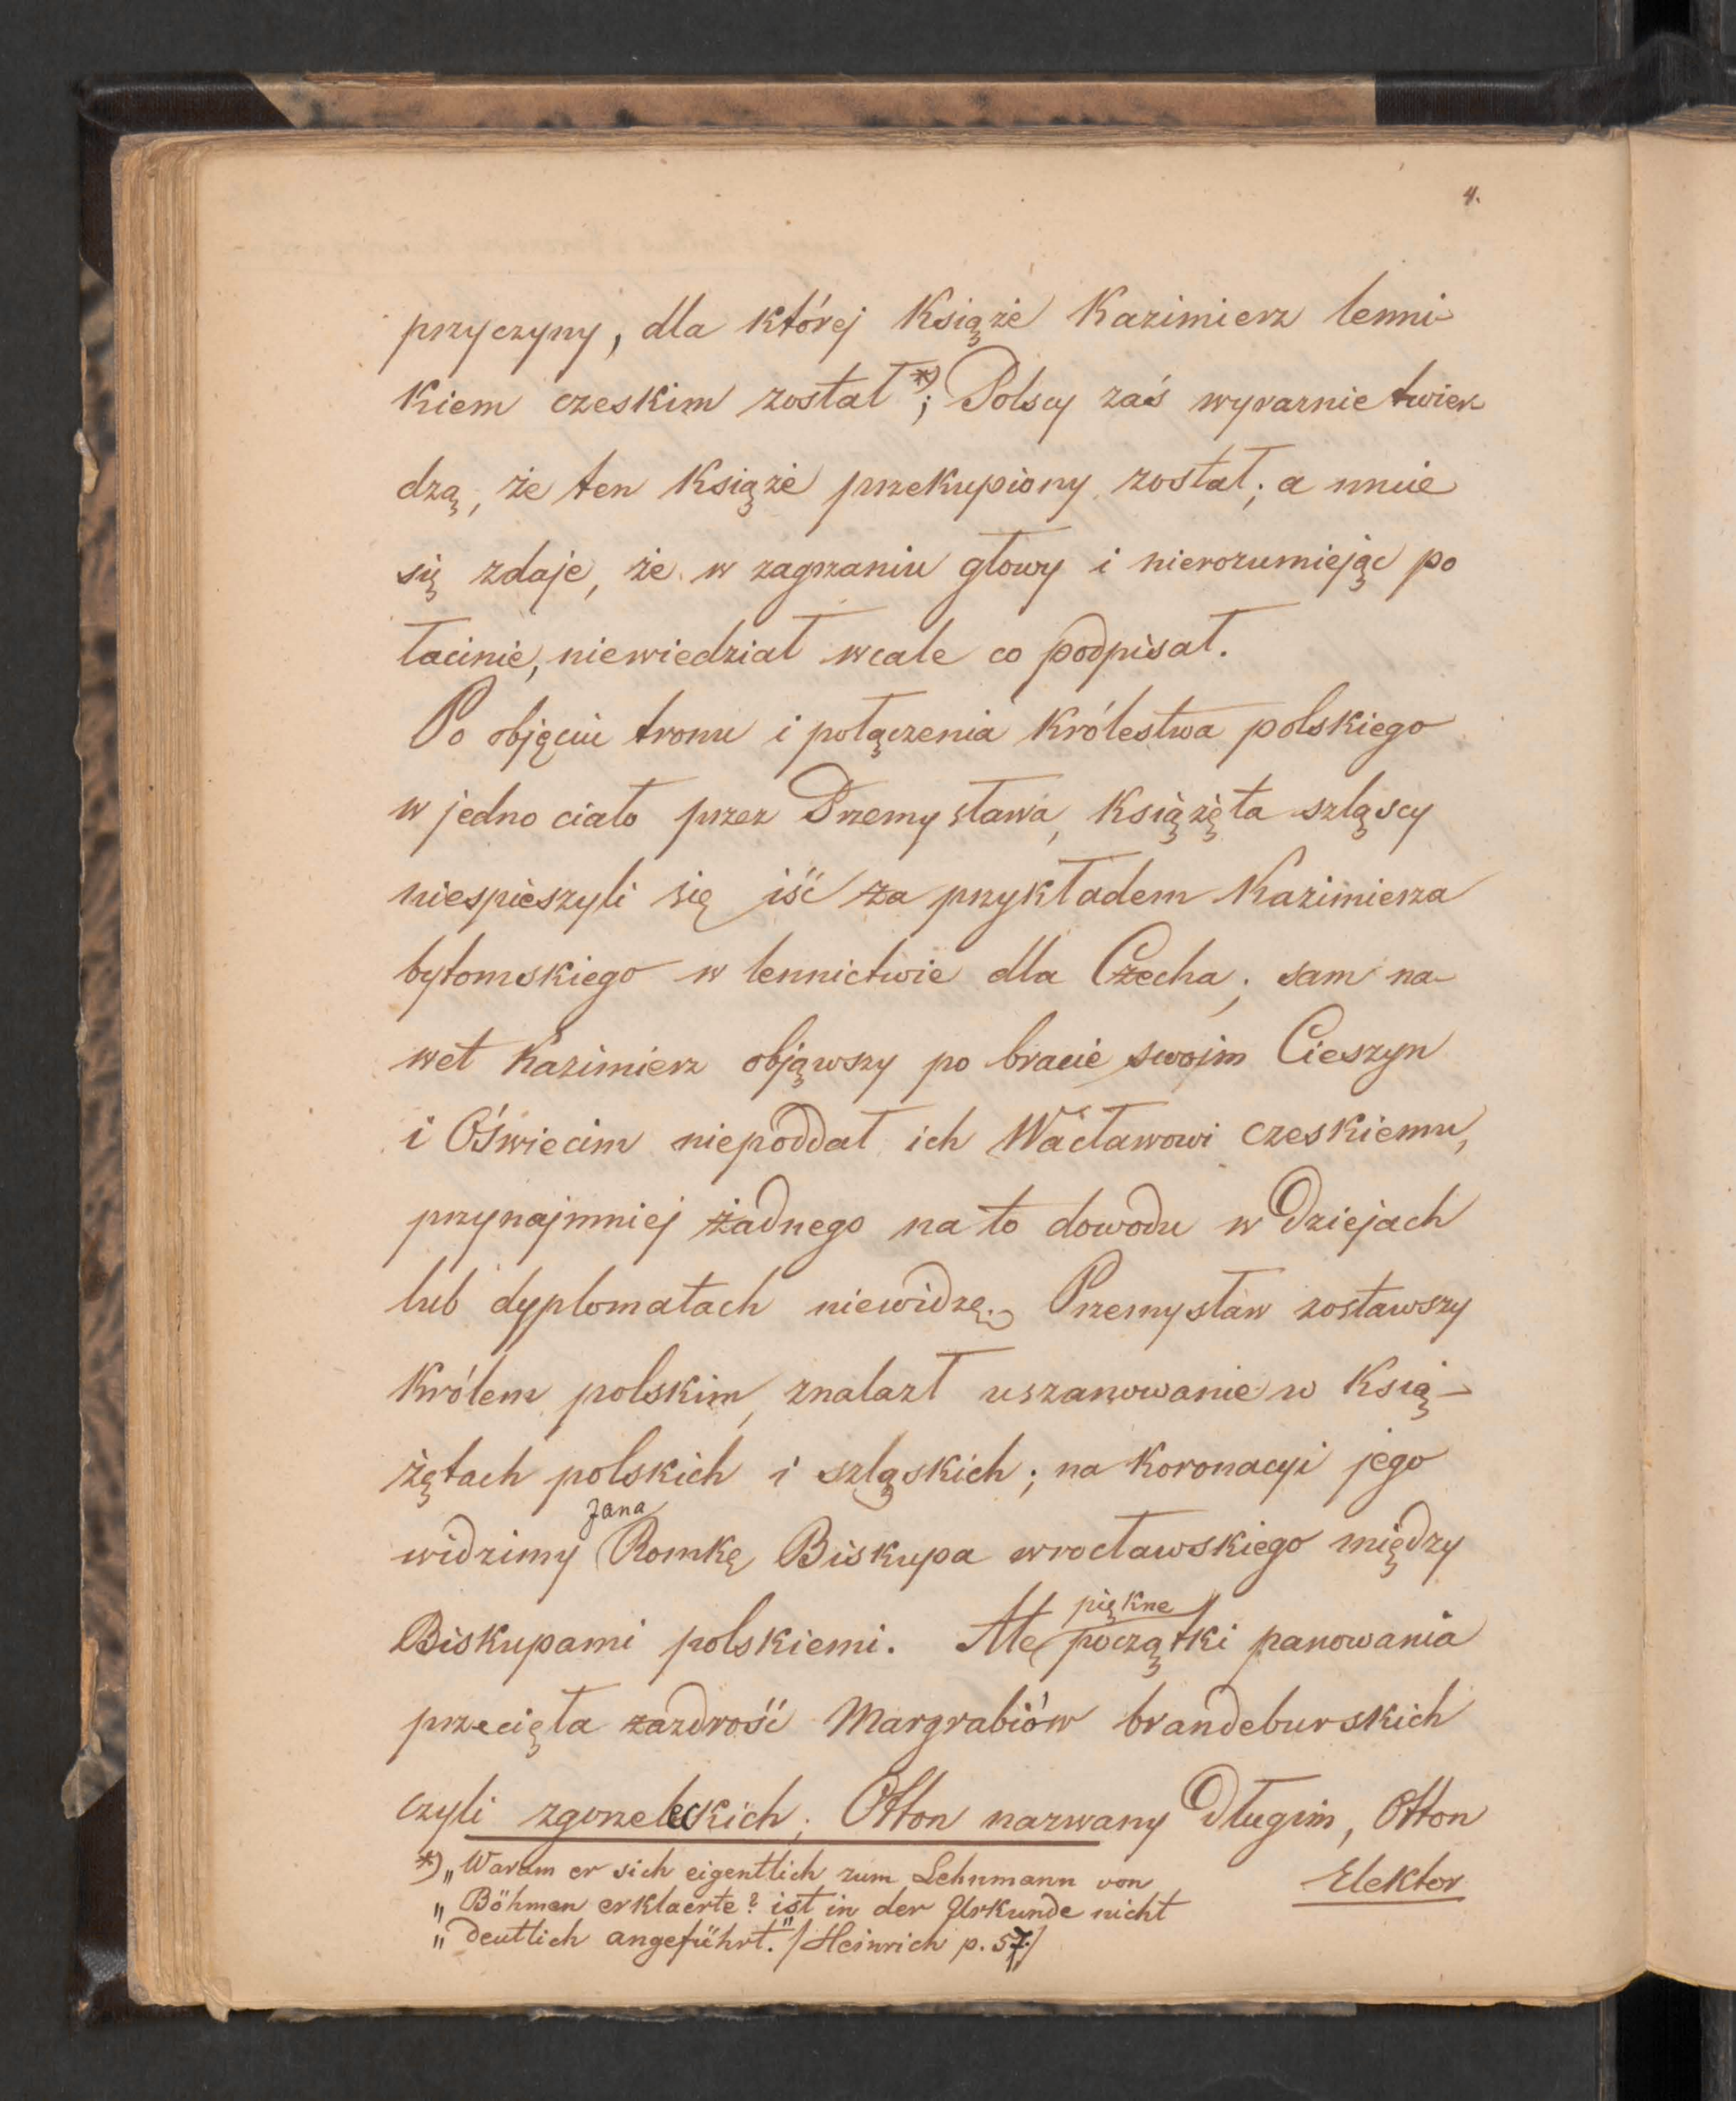 4.
przyczyny, dla której Książe Kazimierz lenni-
kiem czeskim został *); Polscy zaś wyraznie twier
dzą, że ten Książe przekupiony został; a mnie
się zdaje, że w zagrzaniu głowy i nierozumiejąc po
łacinie, niewiedział wcale co podpisał.
Po objęciu tronu i połączenia Królestwa polskiego
w jedno ciało przez Przemysława, Książęta szląscy
niespieszyli się iść za przykładem Kazimierza
bytomskiego w lennictwie dla Czecha; sam na-
wet Kazimierz objąwszy po bracie swoim Cieszyn
i Oświecim niepoddał ich Wacławowi czeskiemu,
przynajmniej żadnego na to dowodu w dziejach
lub dyplomatach niewidzę. Przemysław zostawszy
Królem polskim, znalazł uszanowanie w Ksią-
żętach polskich i szląskich; na Koronacyi jego
Jana
widzimy Romkę Biskupa wrocławskiego między
Biskupami polskiemi. Ale początki panowania
piękne
przecięła zazdrość Margrabiów brandeburskich
czyli zgorzeleckich; Otton nazwany Długim, Otton
Elektor
*) „Warum er sich eigentlich zum Lehnmann von
„ Böhmen erklaerte? ist in der Urkunde nicht
„ deutlich angeführt." /Heinrich p. 57/